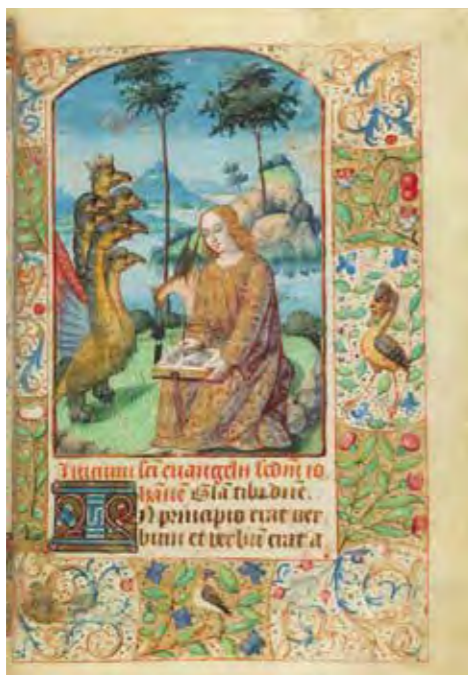 Inicium sci euangelii scdm io
hane Gla tibi dne.
In principio erat ver
bum et verbu erat a